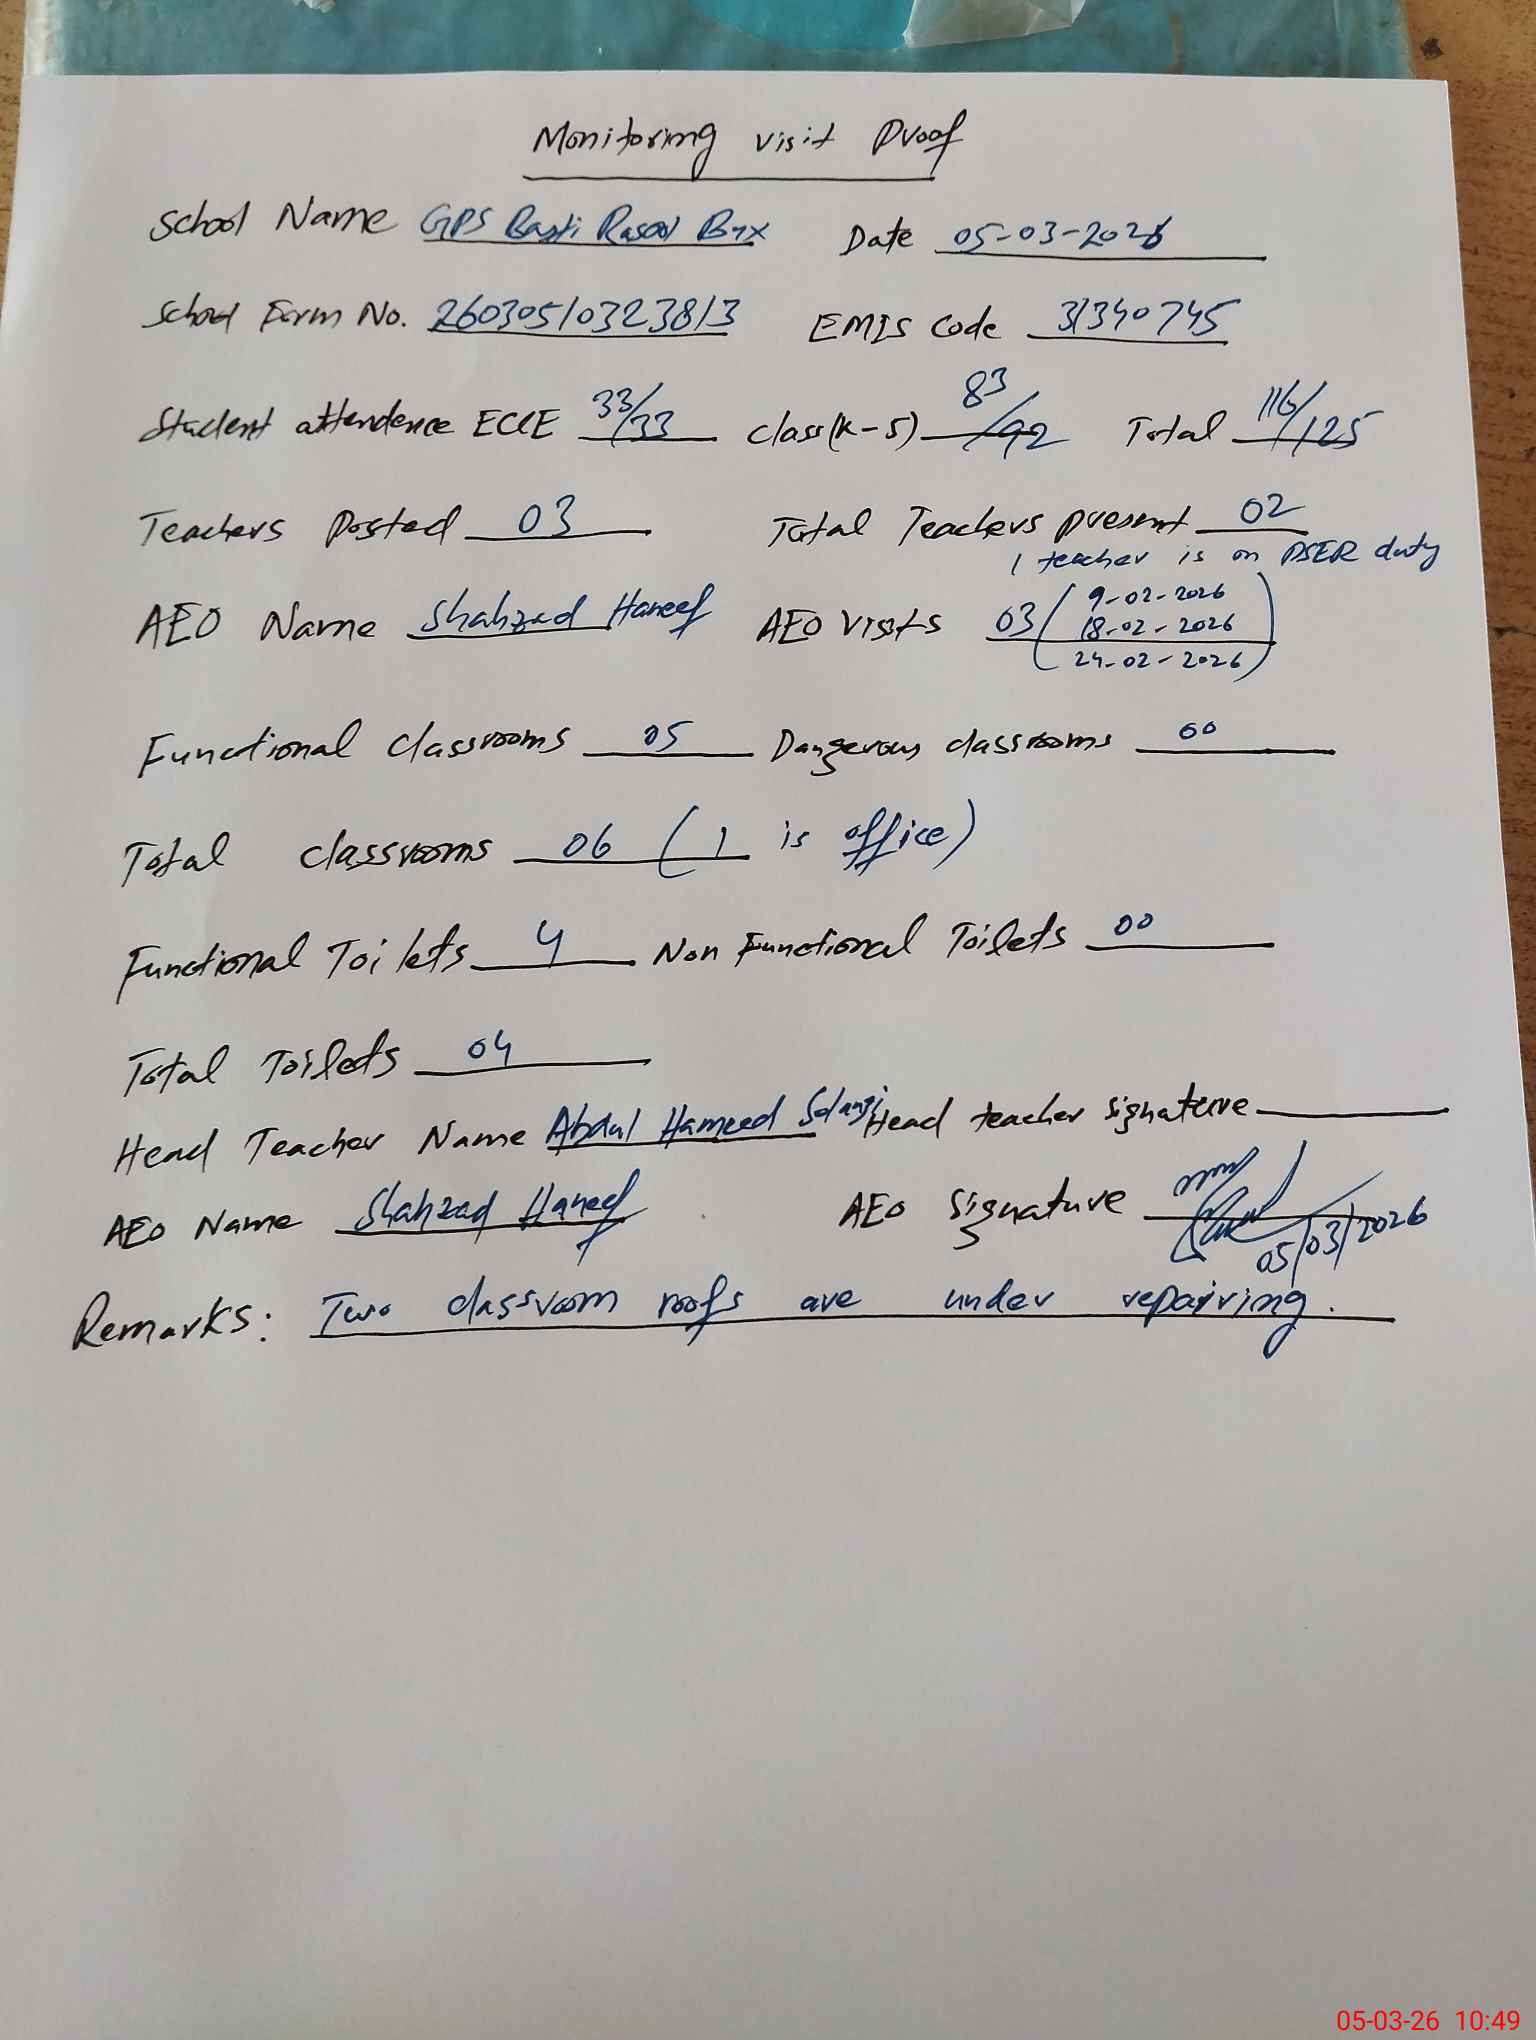 Monitoring visit Proof
School Name GPS Basti Rasool Bux Date 05-03-2026
School Form No. 26030510323813 EMIS Code 31340745
Student attendence ECCE 33/33 class(K-5) 83/92 Total 116/125
Teachers Posted 03 Total Teachers present 02
1 teacher is on PSER duty
AEO Name Shahzad Haneef AEO Visits 03 ( 9-02-2026
18-02-2026
24-02-2026 )
Functional classrooms 05 Dangerous classrooms 00
Total classrooms 06 ( 1 is office)
Functional Toilets 4 Non Functional Toilets 00
Total Toilets 04
Head Teacher Name Abdul Hameed Solangi Head teacher signature
AEO Name Shahzad Haneef AEO Signature
05/03/2026
Remarks: Two classroom roofs are under repairing.
05-03-26 10:49